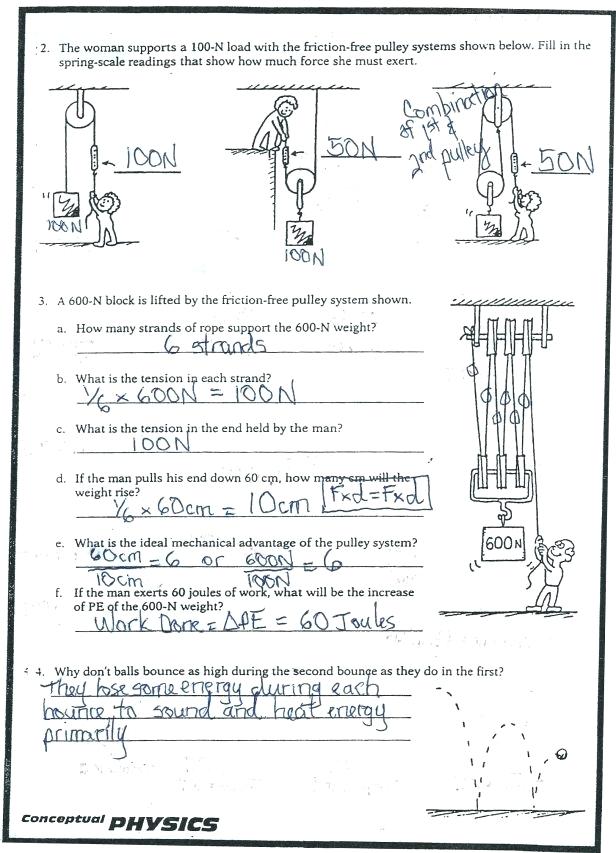 2. The woman supports a 100-N load with the friction-free pulley systems shown below. Fill in the
spring-scale readings that show how much force she must exert.
100N
100N
50N
100N
Combination
of 1st &
2nd pulley
50N
3. A 600-N block is lifted by the friction-free pulley system shown.
a. How many strands of rope support the 600-N weight?
6 strands
b. What is the tension in each strand?
1/6 x 600N = 100N
c. What is the tension in the end held by the man?
100N
d. If the man pulls his end down 60 cm, how many cm will the
weight rise?
1/6 x 60cm = 10cm
Fxd=Fxd
e. What is the ideal mechanical advantage of the pulley system?
60cm/10cm = 6 or 600N/100N = 6
f. If the man exerts 60 joules of work, what will be the increase
of PE of the 600-N weight?
Work Done = ΔPE = 60 Joules
600 N
4. Why don't balls bounce as high during the second bounce as they do in the first?
They lose some energy during each
bounce to sound and heat energy
primarily
Conceptual PHYSICS